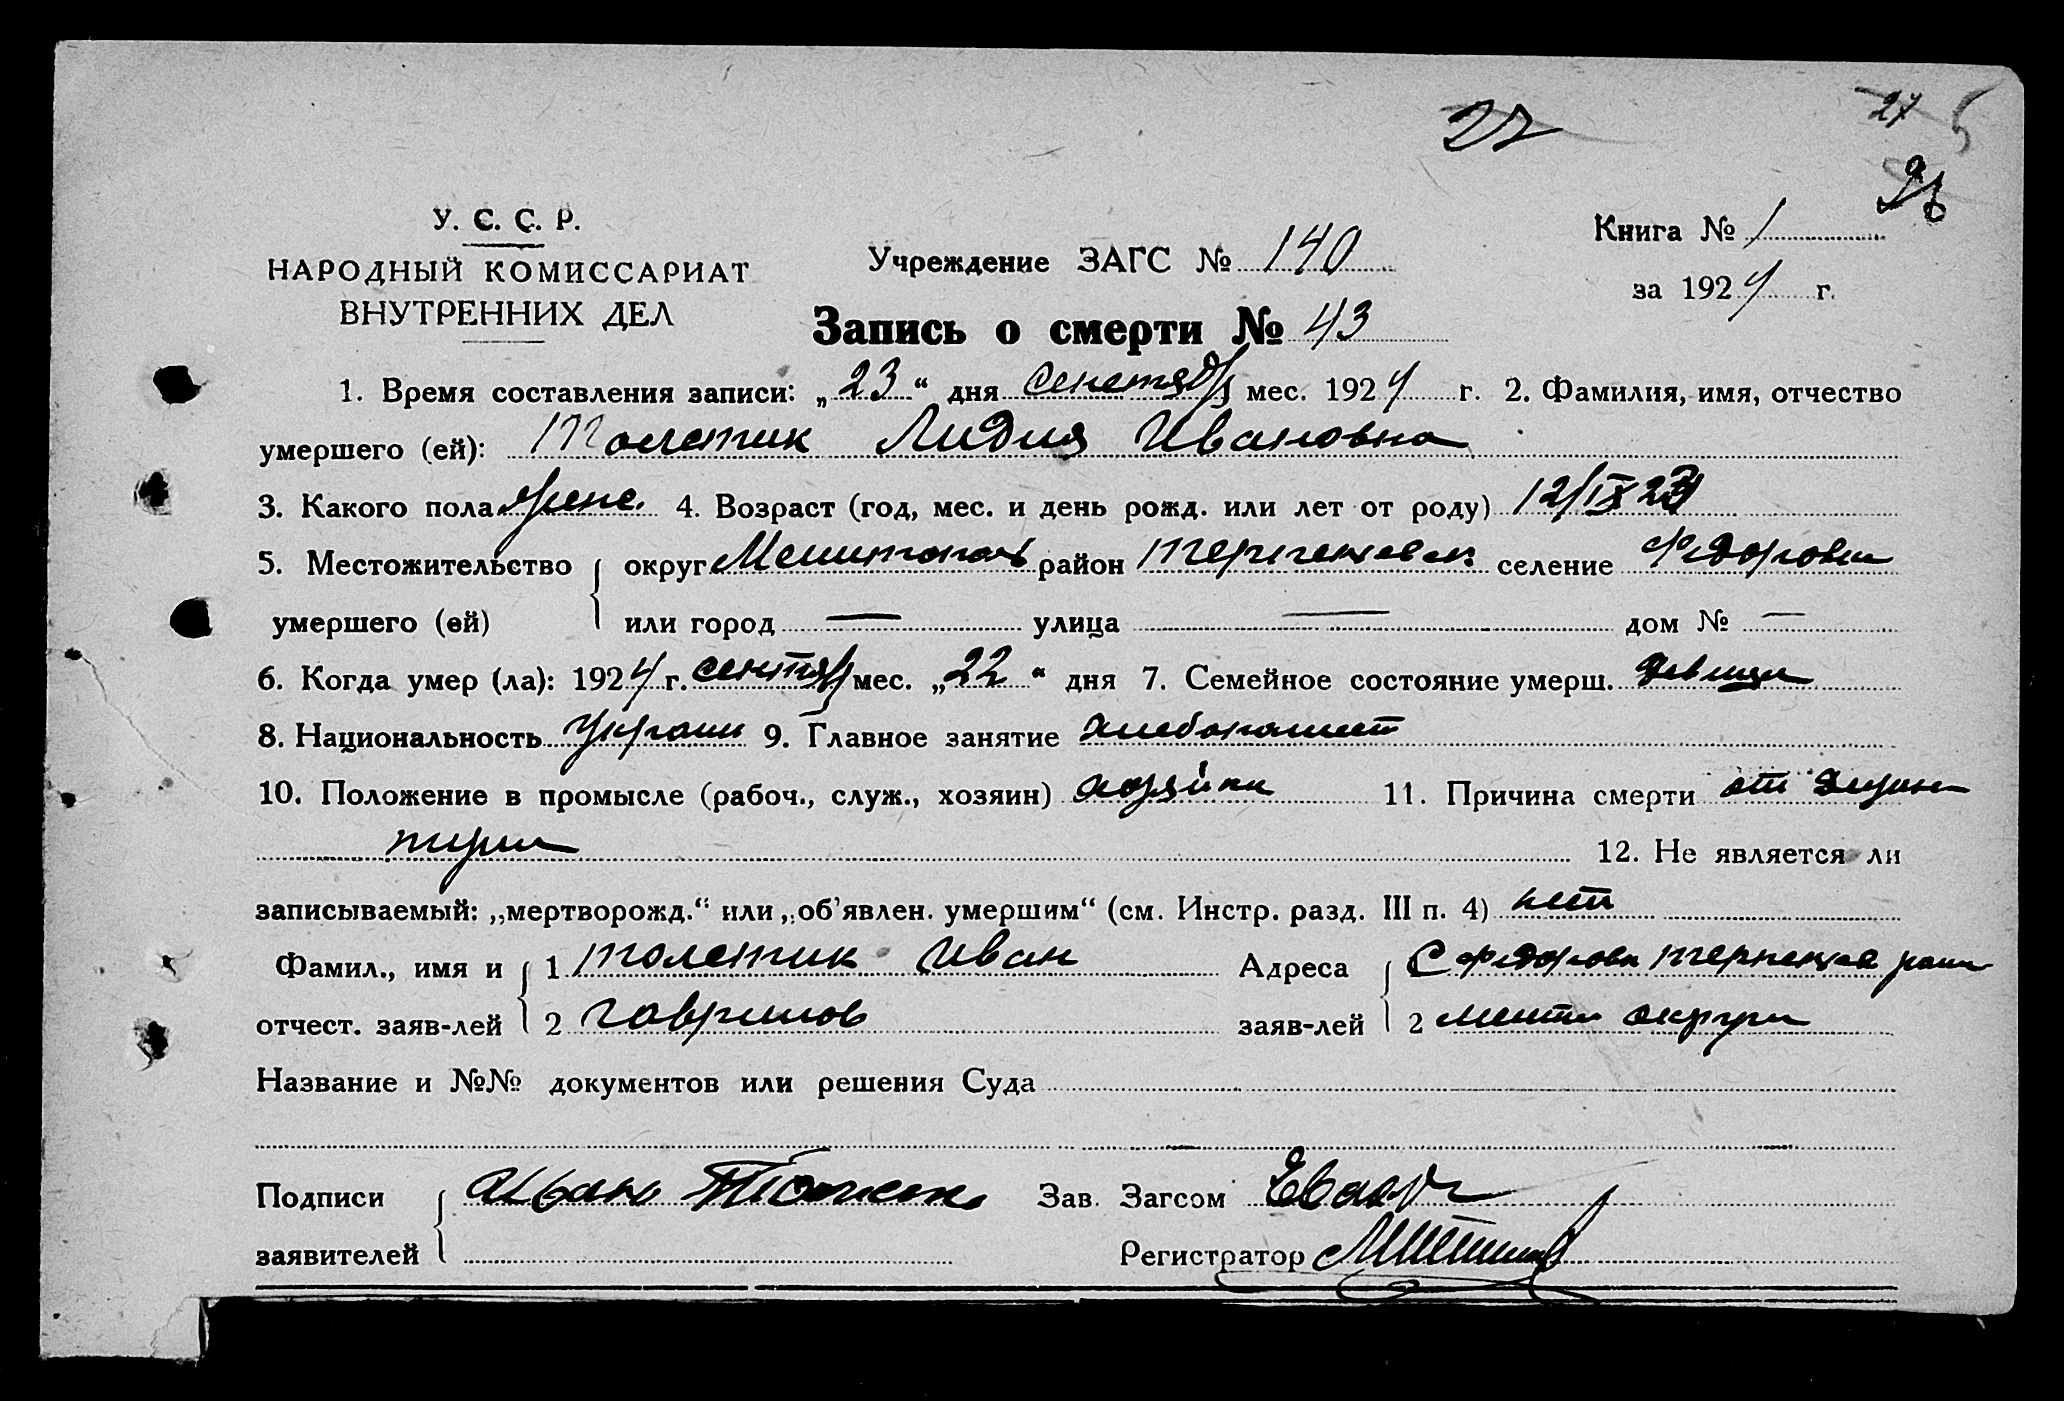 27
27
У. С. С. Р.
НАРОДНЫЙ КОМИССАРИАТ
ВНУТРЕННИХ ДЕЛ
Учреждение ЗАГС № 140
Книга № 1
за 1924 г.
Запись о смерти № 43
1. Время составления записи: „23“ дня сентяб мес. 1924 г. 2. Фамилия, имя, отчество
умершего (ей): Толстик Лидия Ивановна
3. Какого пола женс. 4. Возраст (год, мес. и день рожд. или лет от роду) 12/IX 23
5. Местожительство округ Мелитополь район селение Федоровка
умершего (ей) или город — улица — дом № —
6. Когда умер (ла): 1924 г. сентяб мес. „22“ дня 7. Семейное состояние умерш. девица
8. Национальность Украин 9. Главное занятие хлебопашест
10. Положение в промысле (рабоч., служ., хозяин) хозяйка 11. Причина смерти от дизин
терии 12. Не является ли
записываемый: „мертворожд.“ или „об’явлен. умершим“ (см. Инстр. разд. III п. 4) нет
Фамил., имя и 1 Толстик Иван Адреса С Федоровка
отчест. заяв-лей 2 Гаврилов заяв-лей 2 округа
Название и №№ документов или решения Суда
Подписи Иван Зав. Загсом
заявителей Регистратор